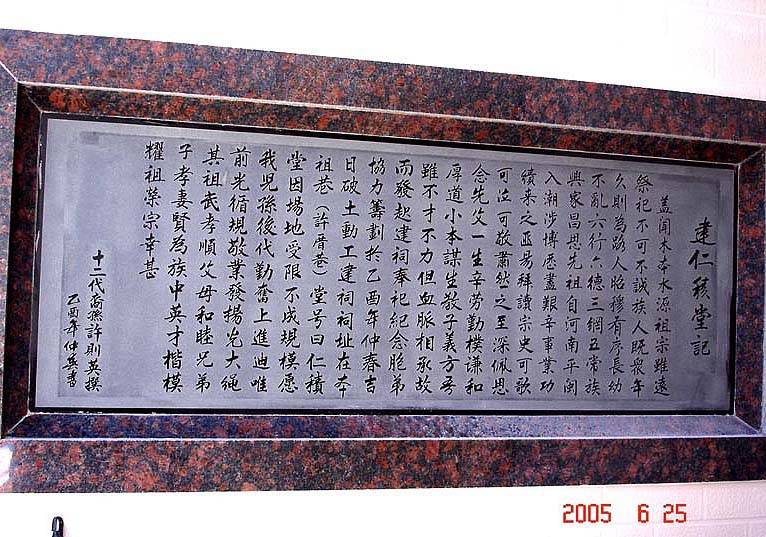 建仁積堂記
蓋聞木本水源祖宗雖遠
祭祀不可不誠族人既衆年
久則為路人昭穆有序長幼
不亂六行六德三綱五常族
興家昌思先祖自河南平閩
入潮涉博歷盡艱辛事業功
績來之匪易拜讀宗史可歌
可泣可敬肅然之至深佩恩
念先父一生辛勞勤樸謙和
厚道小本謀生教子義方吾
雖不才不力但血脈相承故
而發起建祠奉祀紀念胞弟
協力籌劃於乙酉年仲春吉
日破土動工建祠祠址在本
祖巷（許厝巷）堂号曰仁積
堂因場地受限不成規模愿
我兒孫後代勤奮上進迪唯
前光循規敬業發揚光大繩
其祖武孝順父母和睦兄弟
子孝妻賢為族中英才楷模
耀祖榮宗幸甚
十二代裔孫許則英撰
乙酉年仲英書
2005 6 25